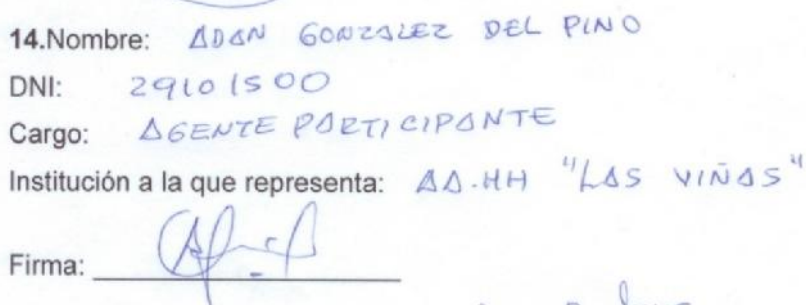 14.Nombre: ADAN GONZALEZ DEL PINO
DNI: 29101500
Cargo: AGENTE PARTICIPANTE
Institución a la que representa: AA.HH "LAS VIÑAS"
Firma: